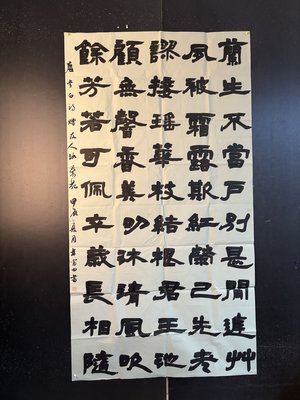 蘭生不當戶別是閒庭艸
夙被霜露欺紅榮已先老
謬接瑶華枝結根君王池
顧無馨香美叨沐清風吹
餘芳若可佩卒歲長相隨
李白詩贈友人 甲辰夏月 書